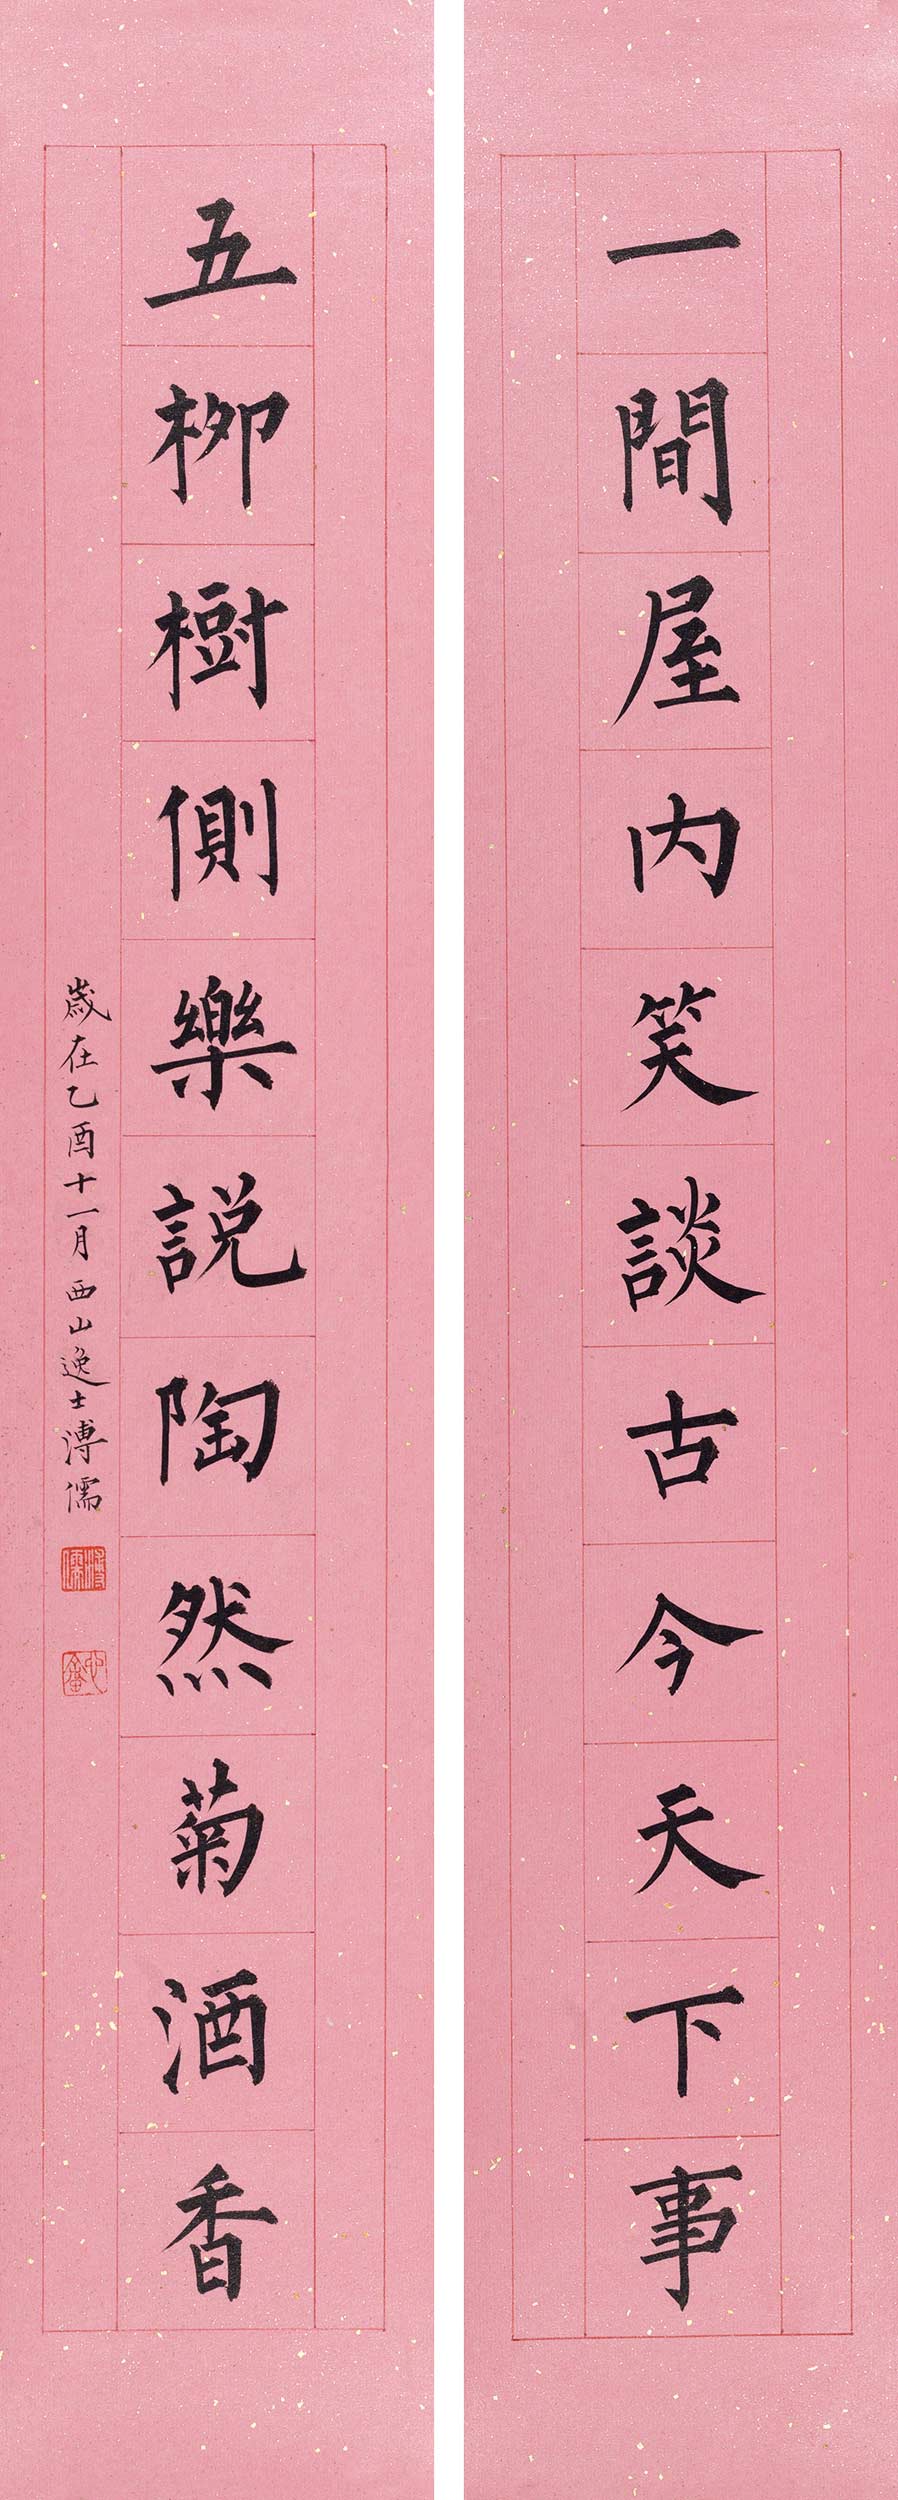 一間屋内笑談古今天下事
五柳樹側樂説陶然菊酒香
歲在乙酉十一月西山逸士溥儒
溥儒